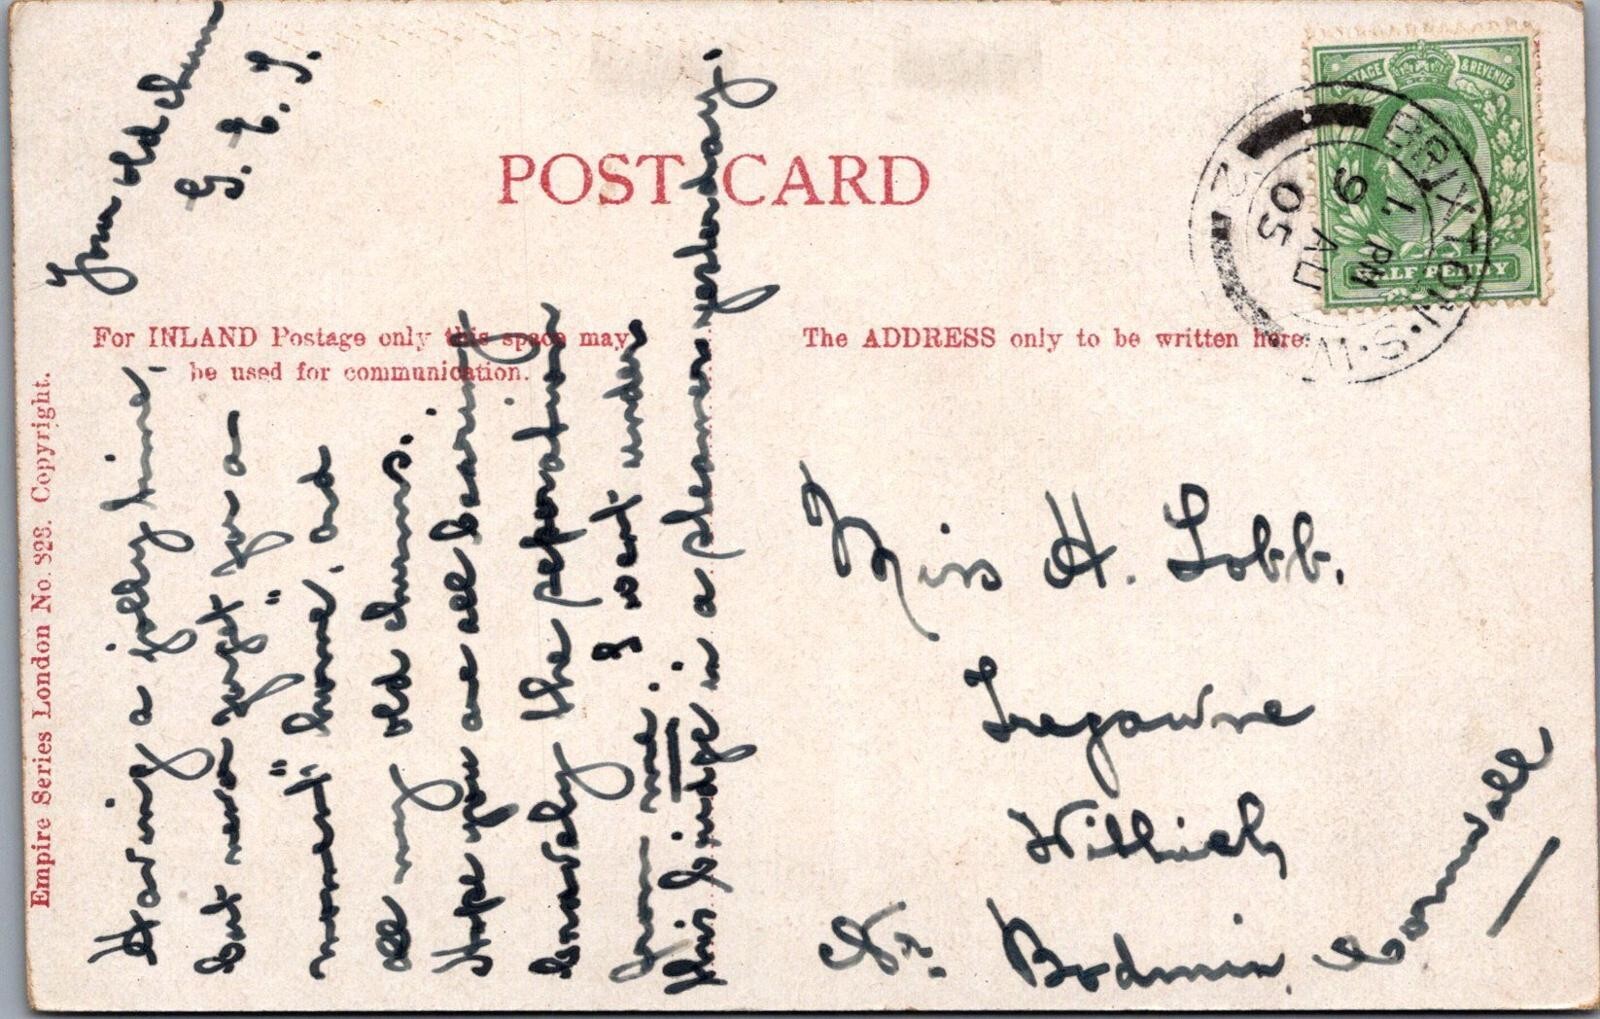 POST CARD
For INLAND Postage only this space may
be used for communication.
The ADDRESS only to be written here.
Empire Series London No. 323. Copyright.
POSTAGE & REVENUE
HALF PENNY
BRIXTON. S.W.
1 PM
9 AU
05
2
Having a jolly time,
but never "forget" for a
moment" home, and
all my old chums.
Hope you are all bearing
bravely the separation
from me. I went under
this bridge in a pleamer yesterday.
Your old chum
G. E. J.
Miss H. Lobb.
Tregawne
Withiel
Nr. Bodmin
Cornwall